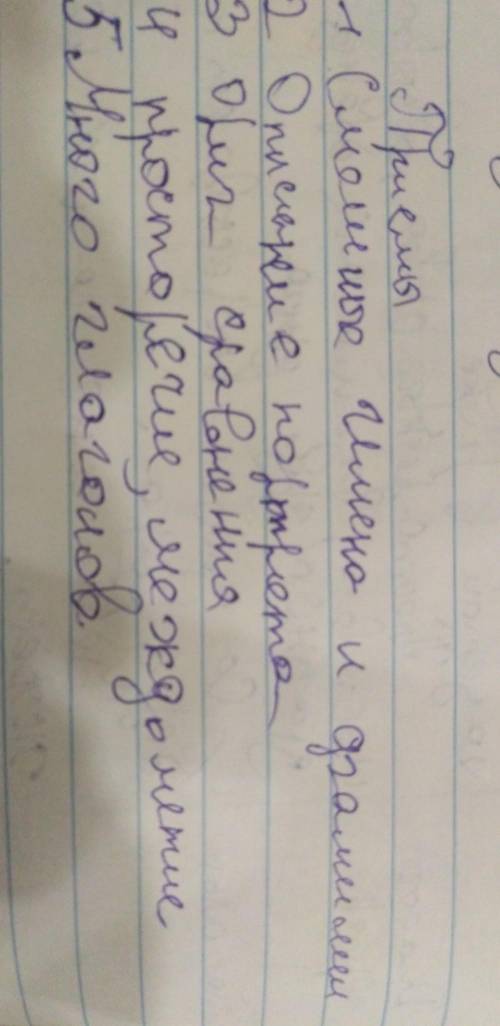 Приемы
1 Смешные Имена и фамилии
2 Описание портрета
3 ориг сравнения
4 просторечие, междометие
5 Много глаголов.